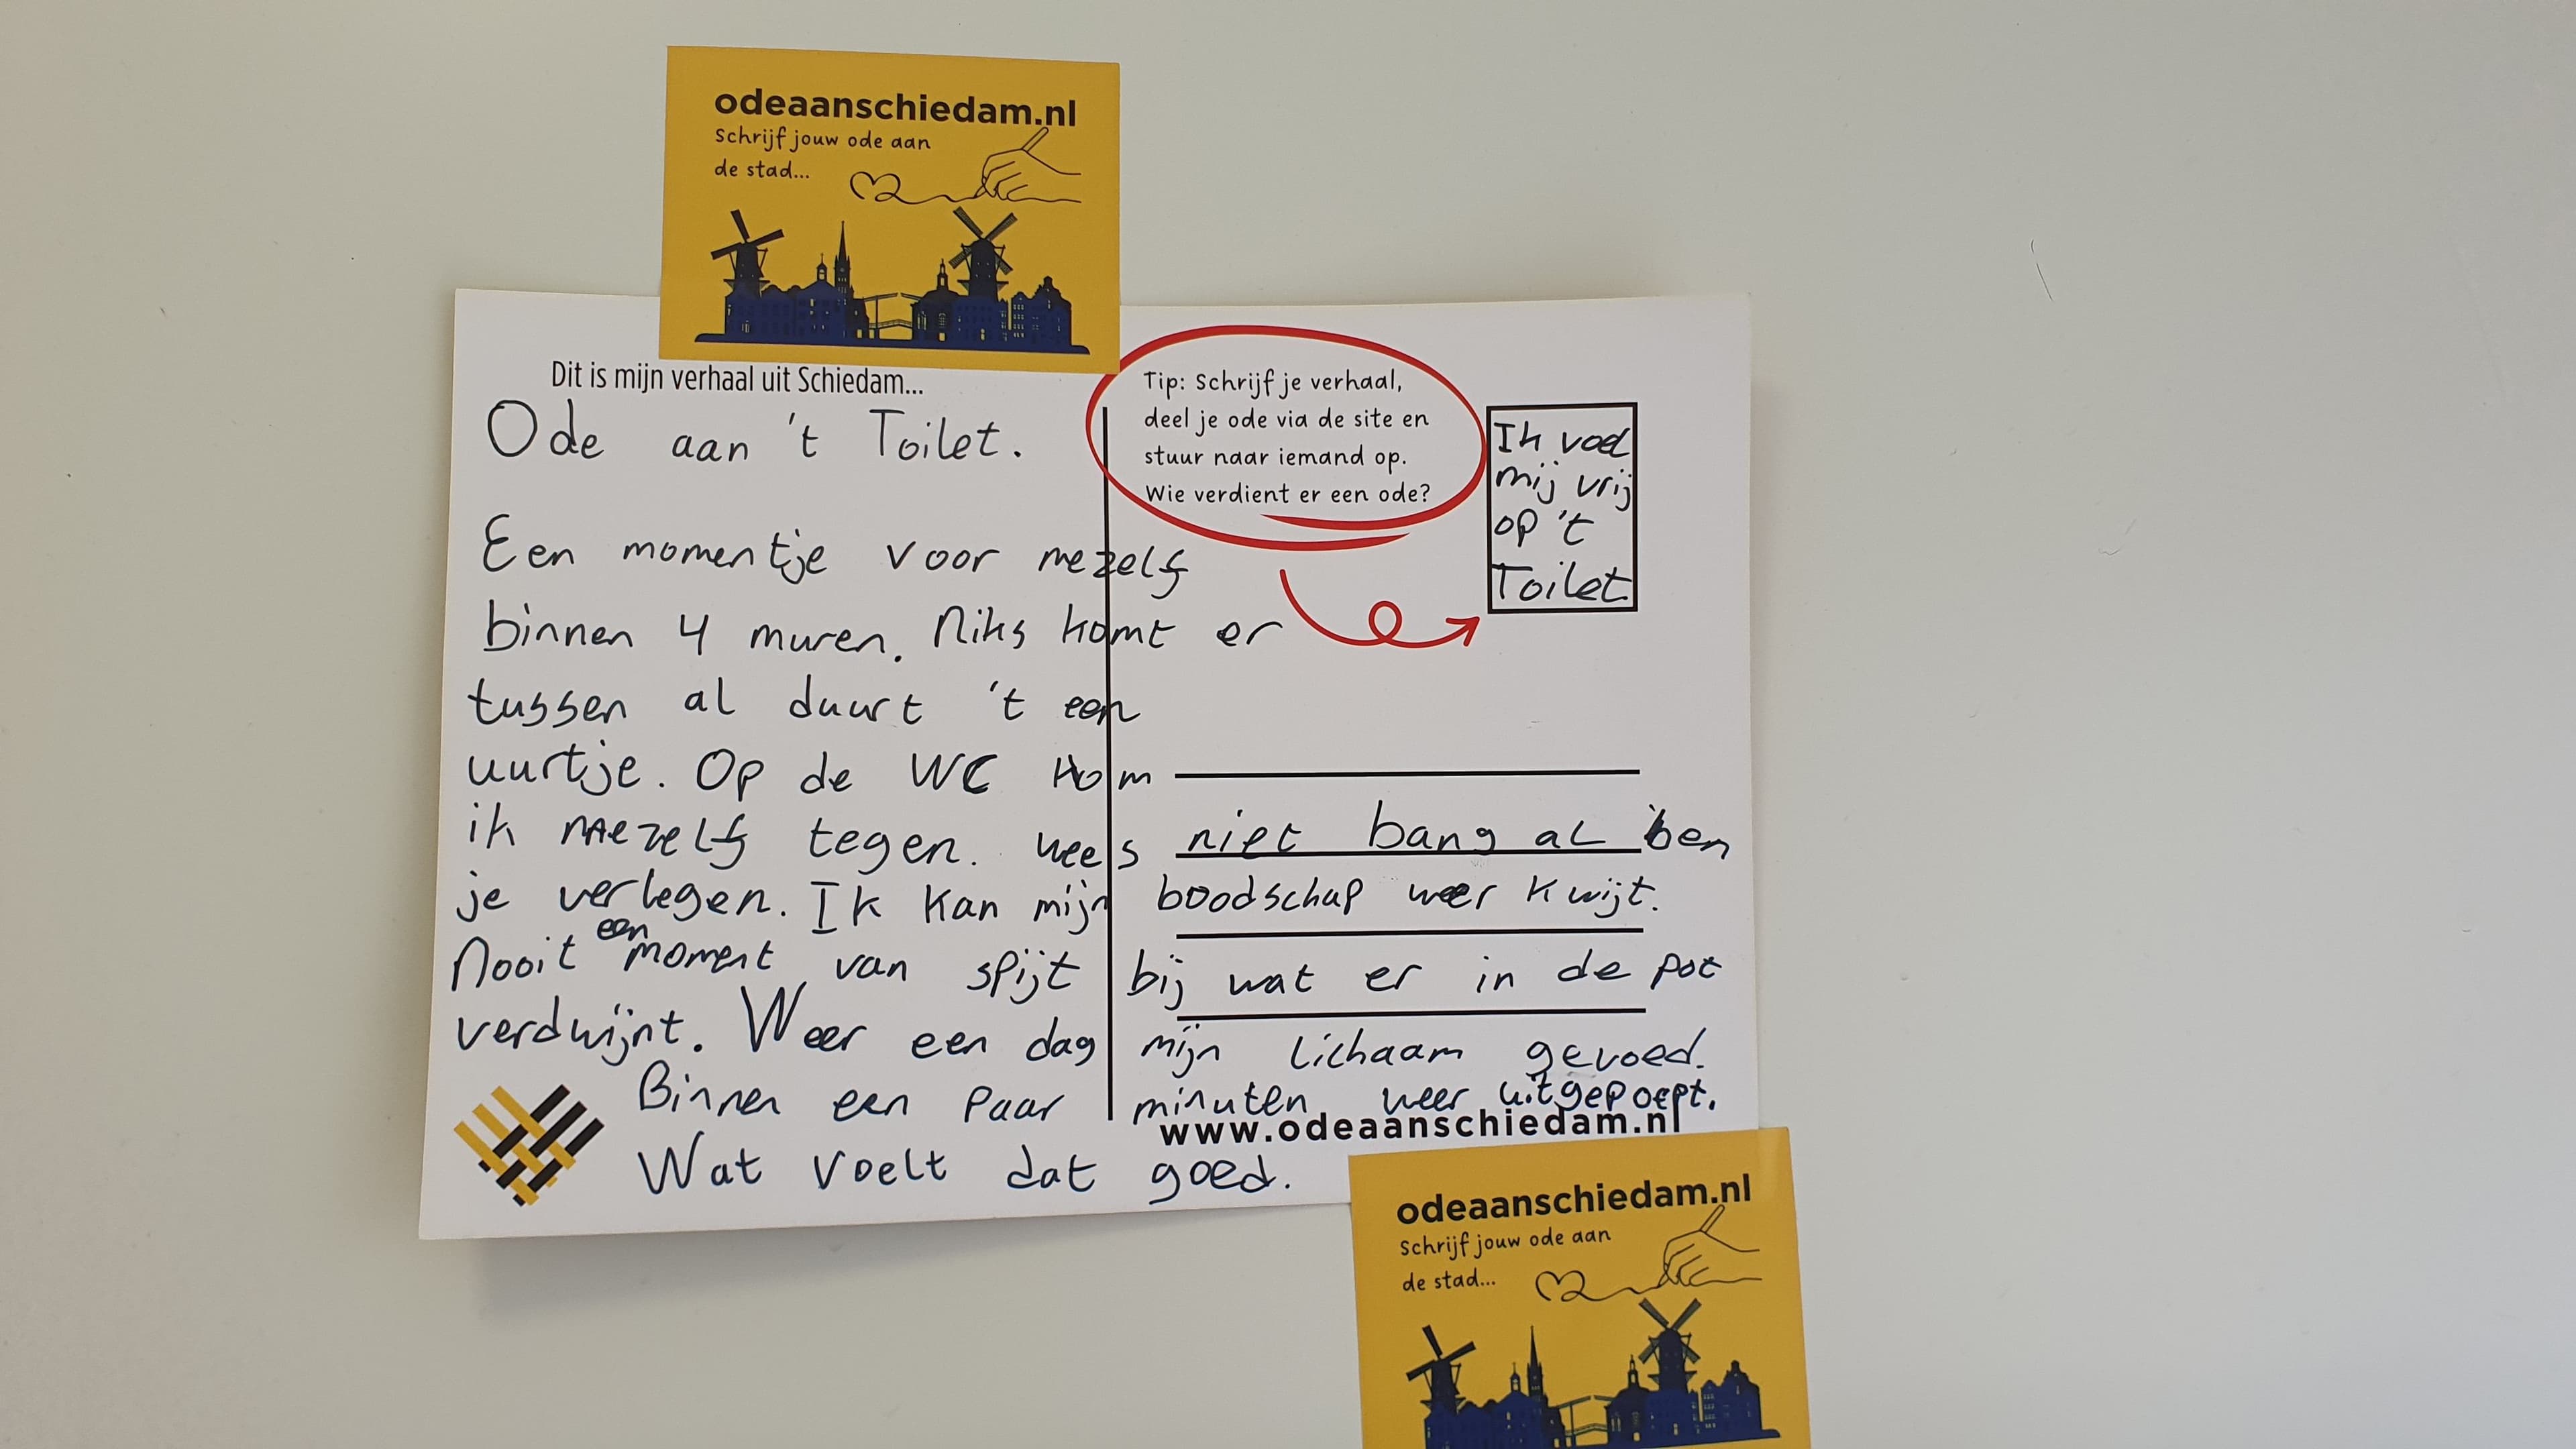 odeaanschiedam.nl
Schrijf jouw ode aan
de stad...
Dit is mijn verhaal uit Schiedam...
Tip: Schrijf je verhaal,
deel je ode via de site en
stuur naar iemand op.
Wie verdient er een ode?
Ik voel
mij vrij
op 't
Toilet
Ode aan 't Toilet.
Een momentje voor mezelf
binnen 4 muren. Niks komt er
tussen al duurt 't een
uurtje. Op de WC kom
ik mezelf tegen. wees niet bang al ben
je verlegen. Ik kan mijn boodschap weer kwijt.
Nooit een moment van spijt bij wat er in de pot
verdwijnt. Weer een dag mijn lichaam gevoed.
Binnen een paar minuten weer uitgepoept.
www.odeaanschiedam.nl
Wat voelt dat goed.
odeaanschiedam.nl
Schrijf jouw ode aan
de stad...